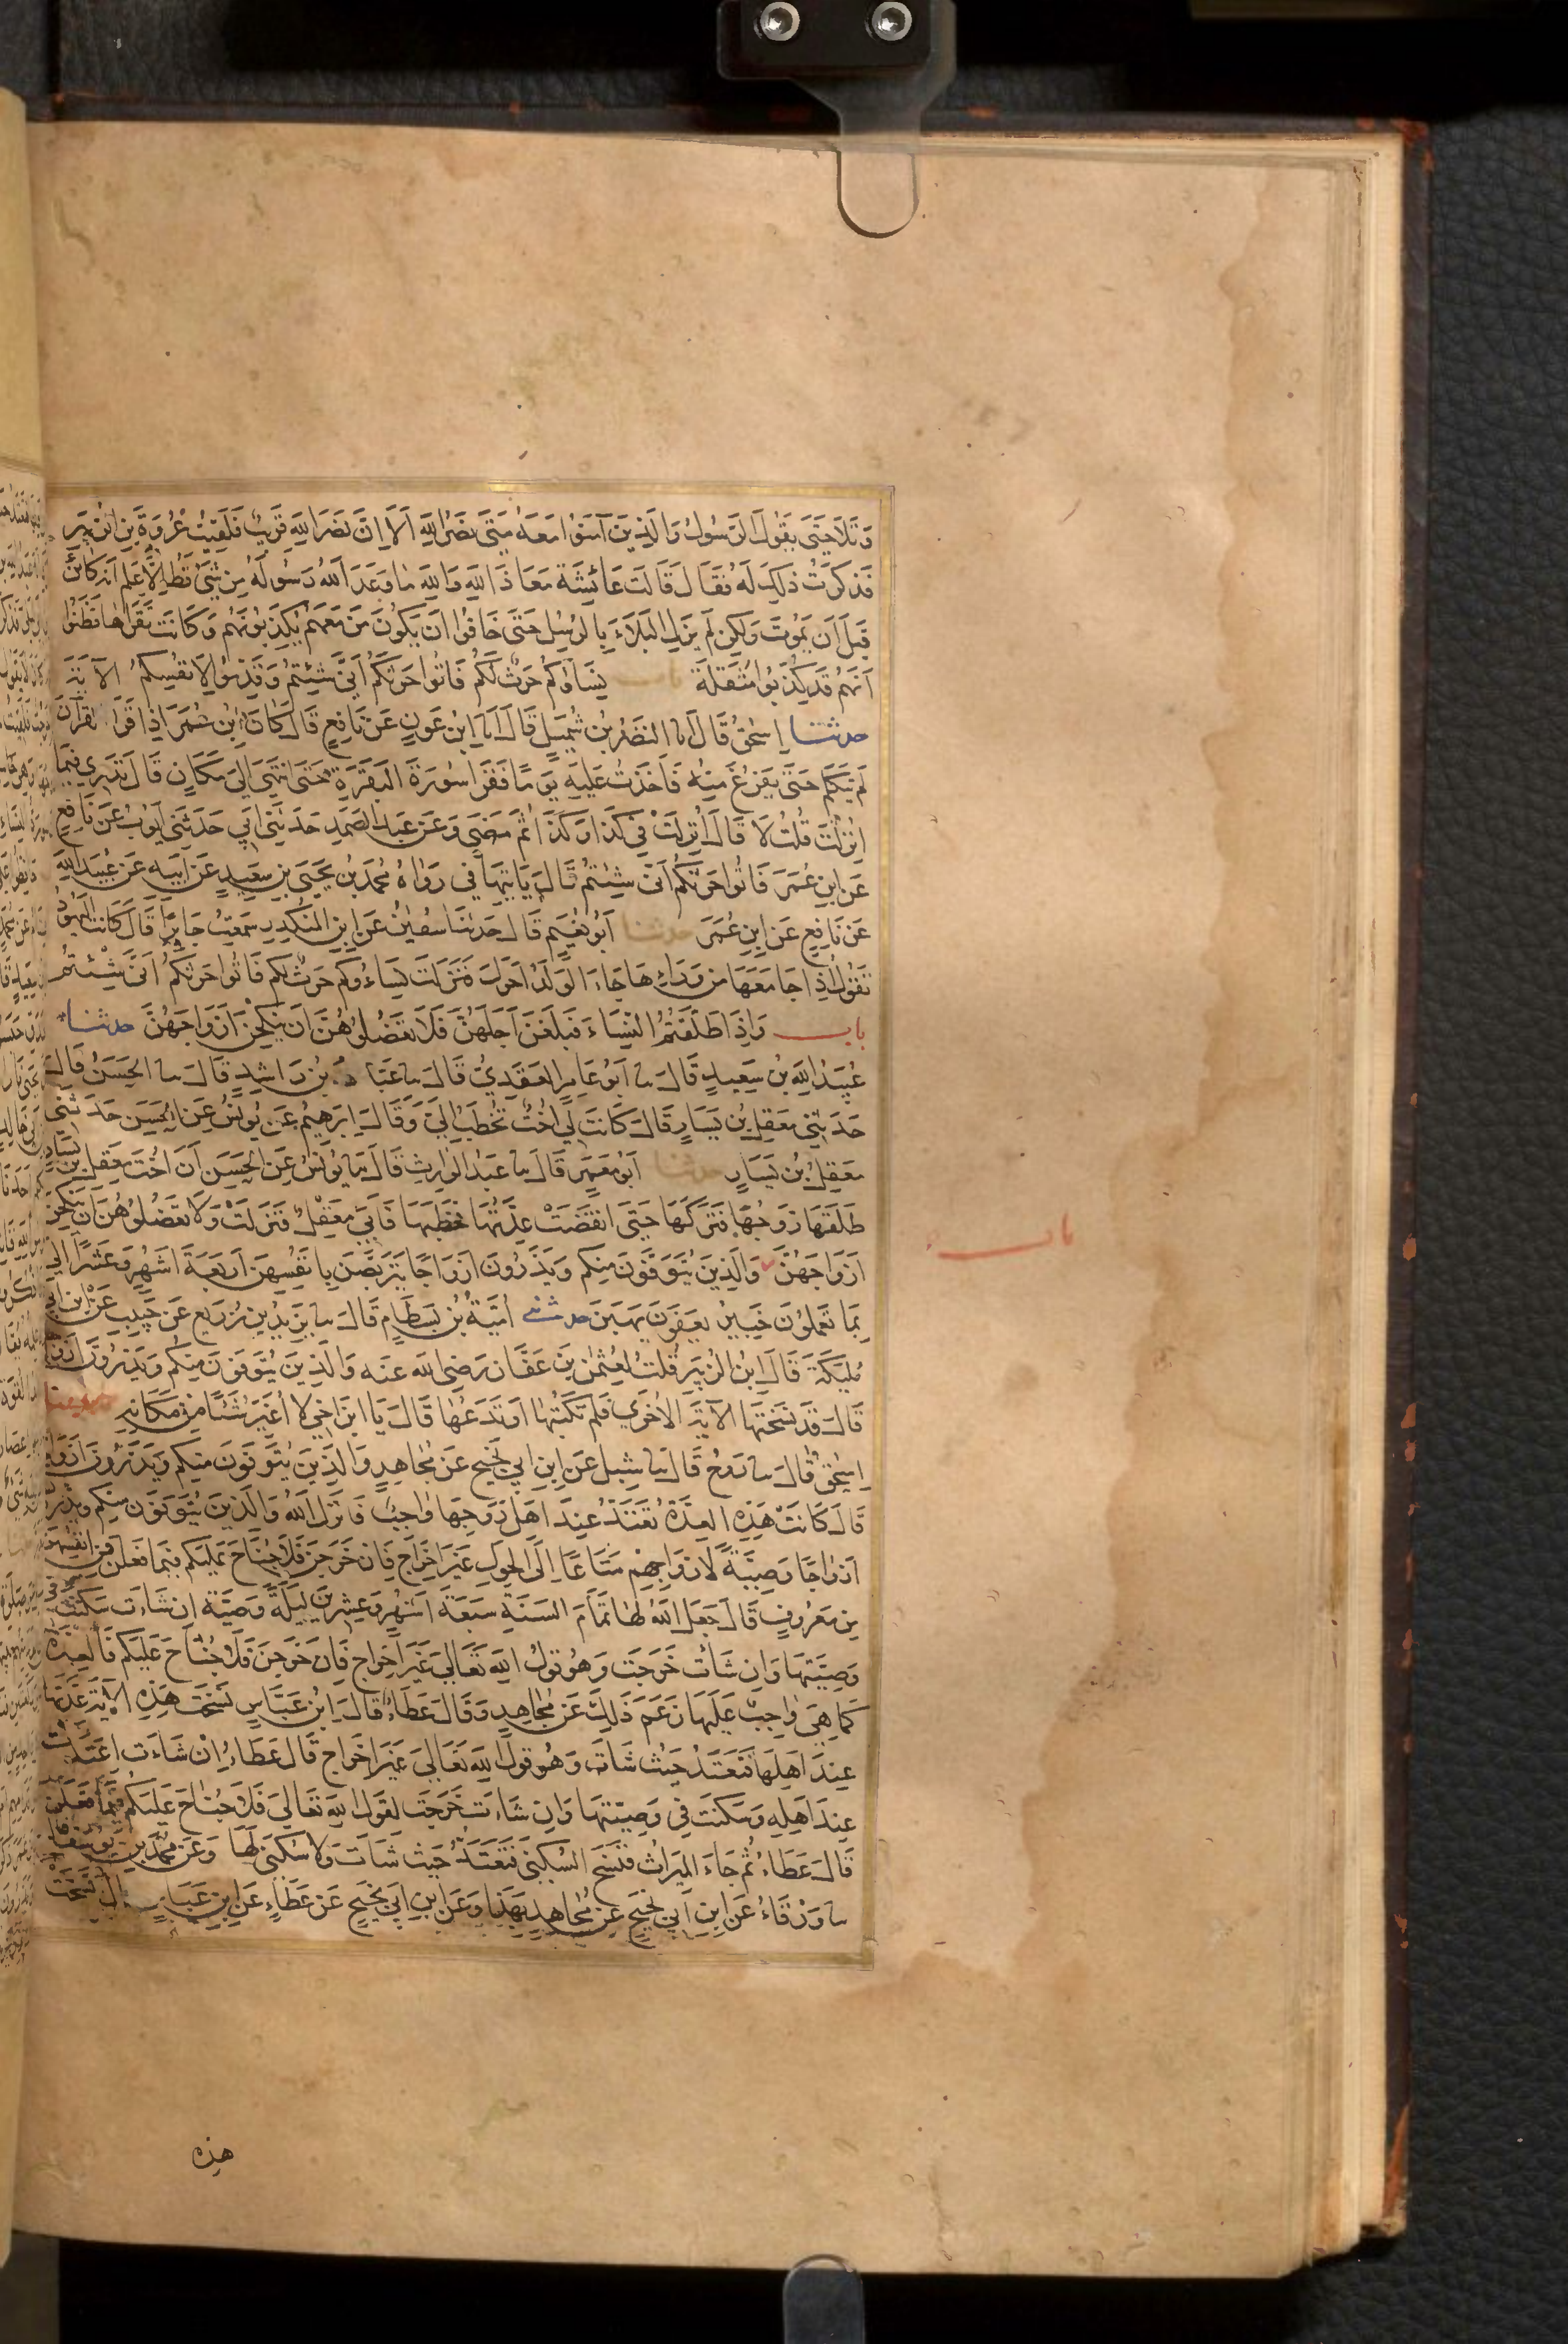 وَتَلَا حَتَّى يَقُولَ الرَّسُولُ وَالَّذِينَ آمَنُوا مَعَهُ مَتَى نَصْرُ اللهِ أَلَا إِنَّ نَصْرَ اللهِ قَرِيبٌ فَلَقِيتُ عُرْوَةَ بْنَ الزُّبَيْرِ
فَذَكَرْتُ ذَلِكَ لَهُ فَقَالَ قَالَتْ عَائِشَةُ مَعَاذَ اللهِ وَاللهِ مَا وَعَدَ اللهُ رَسُولَهُ مِنْ شَيْءٍ قَطُّ إِلَّا عَلِمَ أَنَّهُ كَائِنٌ
قَبْلَ أَنْ يَمُوتَ وَلَكِنْ لَمْ يَزَلِ الْبَلَاءُ بِالرُّسُلِ حَتَّى خَافُوا أَنْ يَكُونَ مَنْ مَعَهُمْ يُكَذِّبُونَهُمْ وَكَانَتْ تَقْرَأُهَا فَظَنُّوا
أَنَّهُمْ قَدْ كُذِّبُوا مُثَقَّلَةً باب نِسَاؤُكُمْ حَرْثٌ لَكُمْ فَأْتُوا حَرْثَكُمْ أَنَّى شِئْتُمْ وَقَدِّمُوا لِأَنْفُسِكُمْ الآيَةَ
حدثنا إِسْحَقُ قَالَ أنا النَّضْرُ بْنُ شُمَيْلٍ قَالَ أنا ابْنُ عَوْنٍ عَنْ نَافِعٍ قَالَ كَانَ ابْنُ عُمَرَ إِذَا قَرَأَ الْقُرْآنَ
لَمْ يَتَكَلَّمْ حَتَّى يَفْرُغَ مِنْهُ فَأَخَذْتُ عَلَيْهِ يَوْمًا فَقَرَأَ سُورَةَ الْبَقَرَةِ حَتَّى انْتَهَى إِلَى مَكَانٍ قَالَ تَدْرِي فِيمَا
أُنْزِلَتْ قُلْتُ لَا قَالَ أُنْزِلَتْ فِي كَذَا وَكَذَا ثُمَّ مَضَى وَعَنْ عَبْدِ الصَّمَدِ حَدَّثَنِي أَبِي حَدَّثَنِي أَيُّوبُ عَنْ نَافِعٍ
عَنِ ابْنِ عُمَرَ فَأْتُوا حَرْثَكُمْ أَنَّى شِئْتُمْ قَالَ يَأْتِيهَا فِي رَوَاهُ مُحَمَّدُ بْنُ يَحْيَى بْنِ سَعِيدٍ عَنْ أَبِيهِ عَنْ عُبَيْدِ اللهِ
عَنْ نَافِعٍ عَنِ ابْنِ عُمَرَ حدثنا أَبُو نُعَيْمٍ قَالَ حَدَّثَنَا سُفْيَنُ عَنِ ابْنِ الْمُنْكَدِرِ سَمِعْتُ جَابِرًا قَالَ كَانَتِ الْيَهُودُ
تَقُولُ إِذَا جَامَعَهَا مِنْ وَرَائِهَا جَاءَ الْوَلَدُ أَحْوَلَ فَنَزَلَتْ نِسَاءُوكُمْ حَرْثٌ لَكُمْ فَأْتُوا حَرْثَكُمْ أَنَّى شِئْتُمْ
باب وَإِذَا طَلَّقْتُمُ النِّسَاءَ فَبَلَغْنَ أَجَلَهُنَّ فَلَا تَعْضُلُوهُنَّ أَنْ يَنْكِحْنَ أَزْوَاجَهُنَّ حدثنا
عُبَيْدُ اللهِ بْنُ سَعِيدٍ قَالَ نا أَبُو عَامِرٍ الْعَقَدِيُّ قَالَ نا عَبَّادُ بْنُ رَاشِدٍ قَالَ نا الْحَسَنُ قَالَ
حَدَّثَنِي مَعْقِلُ بْنُ يَسَارٍ قَالَ كَانَتْ لِي أُخْتٌ تُخْطَبُ إِلَيَّ وَقَالَ إِبْرَهِيمُ عَنْ يُونُسَ عَنِ الْحَسَنِ حَدَّثَنِي
مَعْقِلُ بْنُ يَسَارٍ حدثنا أَبُو مَعْمَرٍ قَالَ نا عَبْدُ الْوَارِثِ قَالَ نا يُونُسُ عَنِ الْحَسَنِ أَنَّ أُخْتَ مَعْقِلِ بْنِ يَسَارٍ
طَلَّقَهَا زَوْجُهَا فَتَرَكَهَا حَتَّى انْقَضَتْ عِدَّتُهَا فَخَطَبَهَا فَأَبَى مَعْقِلٌ فَنَزَلَتْ وَلَا تَعْضُلُوهُنَّ أَنْ يَنْكِحْنَ
باب
أَزْوَاجَهُنَّ وَالَّذِينَ يُتَوَفَّوْنَ مِنْكُمْ وَيَذَرُونَ أَزْوَاجًا يَتَرَبَّصْنَ بِأَنْفُسِهِنَّ أَرْبَعَةَ أَشْهُرٍ وَعَشْرًا إِلَى
بِمَا تَعْمَلُونَ خَبِيرٌ يَعْفُونَ يَهَبْنَ حدثني أُمَيَّةُ بْنُ بِسْطَامٍ قَالَ نا يَزِيدُ بْنُ زُرَيْعٍ عَنْ حَبِيبٍ عَنِ ابْنِ أَبِي
مُلَيْكَةَ قَالَ ابْنُ الزُّبَيْرِ قُلْتُ لِعُثْمَنَ بْنِ عَفَّانَ رَضِيَ اللهُ عَنْهُ وَالَّذِينَ يُتَوَفَّوْنَ مِنْكُمْ وَيَذَرُونَ أَزْوَاجًا
قَالَ قَدْ نَسَخَتْهَا الآيَةُ الْأُخْرَى فَلِمَ تَكْتُبُهَا أَوْ تَدَعُهَا قَالَ يَا ابْنَ أَخِي لَا أُغَيِّرُ شَيْئًا مِنْ مَكَانِهِ حدثنا
إِسْحَقُ قَالَ نا رَوْحٌ قَالَ نا شِبْلٌ عَنِ ابْنِ أَبِي نَجِيحٍ عَنْ مُجَاهِدٍ وَالَّذِينَ يُتَوَفَّوْنَ مِنْكُمْ وَيَذَرُونَ أَزْوَاجًا
قَالَ كَانَتْ هَذِهِ الْعِدَّةُ تَعْتَدُّ عِنْدَ أَهْلِ زَوْجِهَا وَاجِبٌ فَأَنْزَلَ اللهُ وَالَّذِينَ يُتَوَفَّوْنَ مِنْكُمْ وَيَذَرُونَ
أَزْوَاجًا وَصِيَّةً لِأَزْوَاجِهِمْ مَتَاعًا إِلَى الْحَوْلِ غَيْرَ إِخْرَاجٍ فَإِنْ خَرَجْنَ فَلَا جُنَاحَ عَلَيْكُمْ فِيمَا فَعَلْنَ فِي أَنْفُسِهِنَّ
مِنْ مَعْرُوفٍ قَالَ جَعَلَ اللهُ لَهَا تَمَامَ السَّنَةِ سَبْعَةَ أَشْهُرٍ وَعِشْرِينَ لَيْلَةً وَصِيَّةً إِنْ شَاءَتْ سَكَنَتْ فِي
وَصِيَّتِهَا وَإِنْ شَاءَتْ خَرَجَتْ وَهُوَ قَوْلُ اللهِ تَعَالَى غَيْرَ إِخْرَاجٍ فَإِنْ خَرَجْنَ فَلَا جُنَاحَ عَلَيْكُمْ فَالْعِدَّةُ
كَمَا هِيَ وَاجِبٌ عَلَيْهَا زَعَمَ ذَلِكَ عَنْ مُجَاهِدٍ وَقَالَ عَطَاءٌ قَالَ ابْنُ عَبَّاسٍ نَسَخَتْ هَذِهِ الآيَةُ عِدَّتَهَا
عِنْدَ أَهْلِهَا فَتَعْتَدُّ حَيْثُ شَاءَتْ وَهُوَ قَوْلُ اللهِ تَعَالَى غَيْرَ إِخْرَاجٍ قَالَ عَطَاءٌ إِنْ شَاءَتْ اعْتَدَّتْ
عِنْدَ أَهْلِهِ وَسَكَنَتْ فِي وَصِيَّتِهَا وَإِنْ شَاءَتْ خَرَجَتْ لِقَوْلِ اللهِ تَعَالَى فَلَا جُنَاحَ عَلَيْكُمْ فِيمَا فَعَلْنَ
قَالَ عَطَاءٌ ثُمَّ جَاءَ الْمِيرَاثُ فَنَسَخَ السُّكْنَى فَتَعْتَدُّ حَيْثُ شَاءَتْ وَلَا سُكْنَى لَهَا وَعَنْ مُحَمَّدِ بْنِ يُوسُفَ
نا وَرْقَاءُ عَنِ ابْنِ أَبِي نَجِيحٍ عَنْ مُجَاهِدٍ بِهَذَا وَعَنِ ابْنِ أَبِي نَجِيحٍ عَنْ عَطَاءٍ عَنِ ابْنِ عَبَّاسٍ قَالَ نَسَخَتْ
هذه